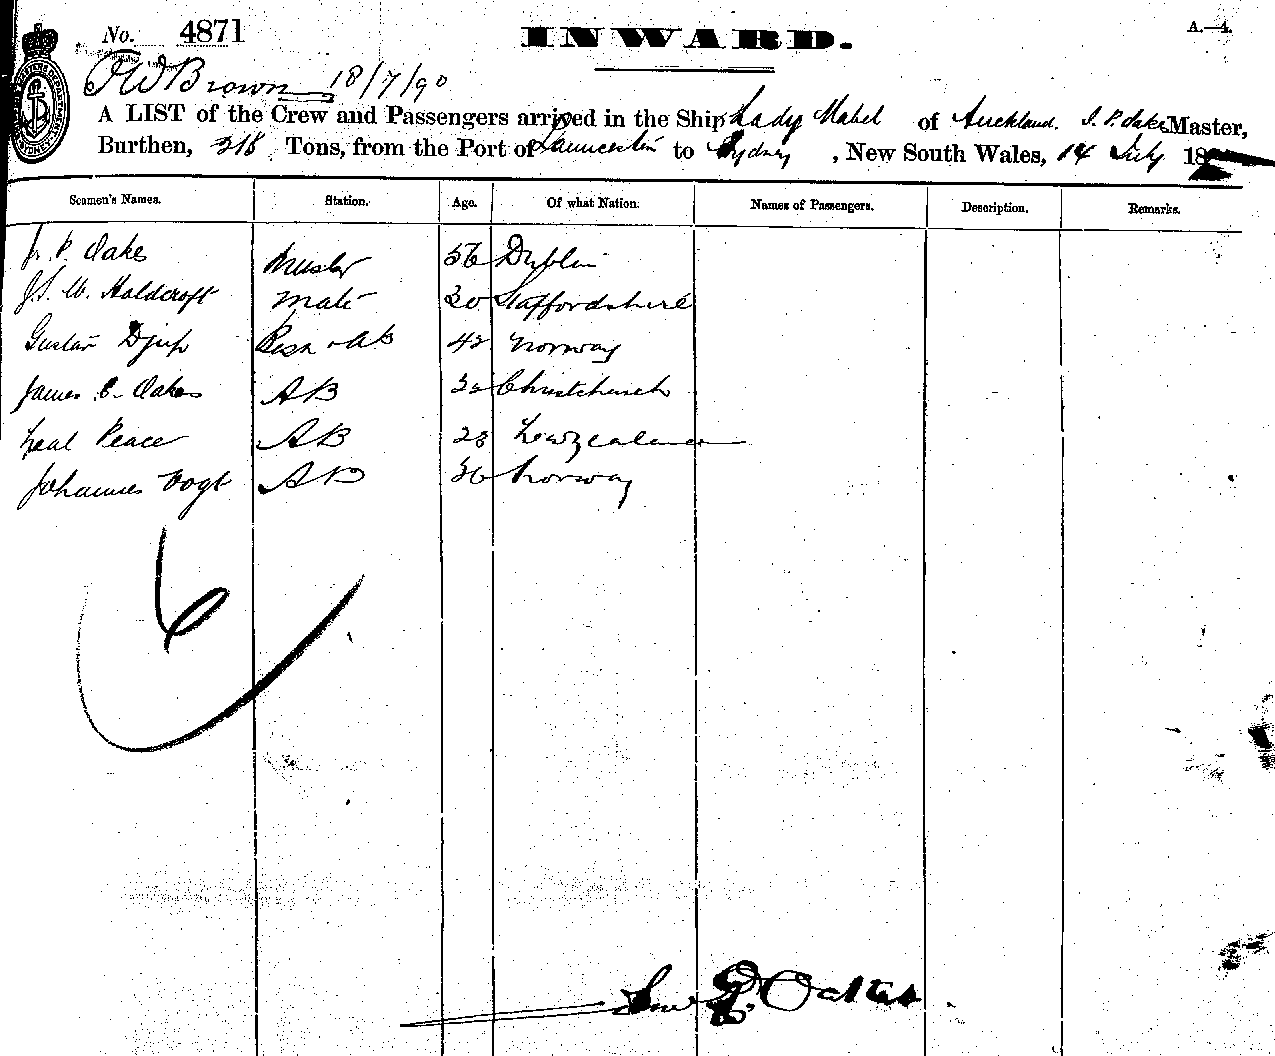 No. 4871
INWARD.
A.—4.
F W Brown 18/7/90
A LIST of the Crew and Passengers arrived in the Ship Lady Mabel of Auckland. J. P. Oakes Master,
Burthen, 318 Tons, from the Port of Launceston to Sydney, New South Wales, 14 July 18
Seamen's Names. Station. Age. Of what Nation. Names of Passengers. Description. Remarks.
J. P. Oakes Master 56 Dublin
Holdcroft Mate 30 Staffordshire
Gustav Djup AB 42 Norway
James C. Oakes AB Christchurch
Peace AB 23 Newzealand
Johannes Vogt AB 36 Norway
6